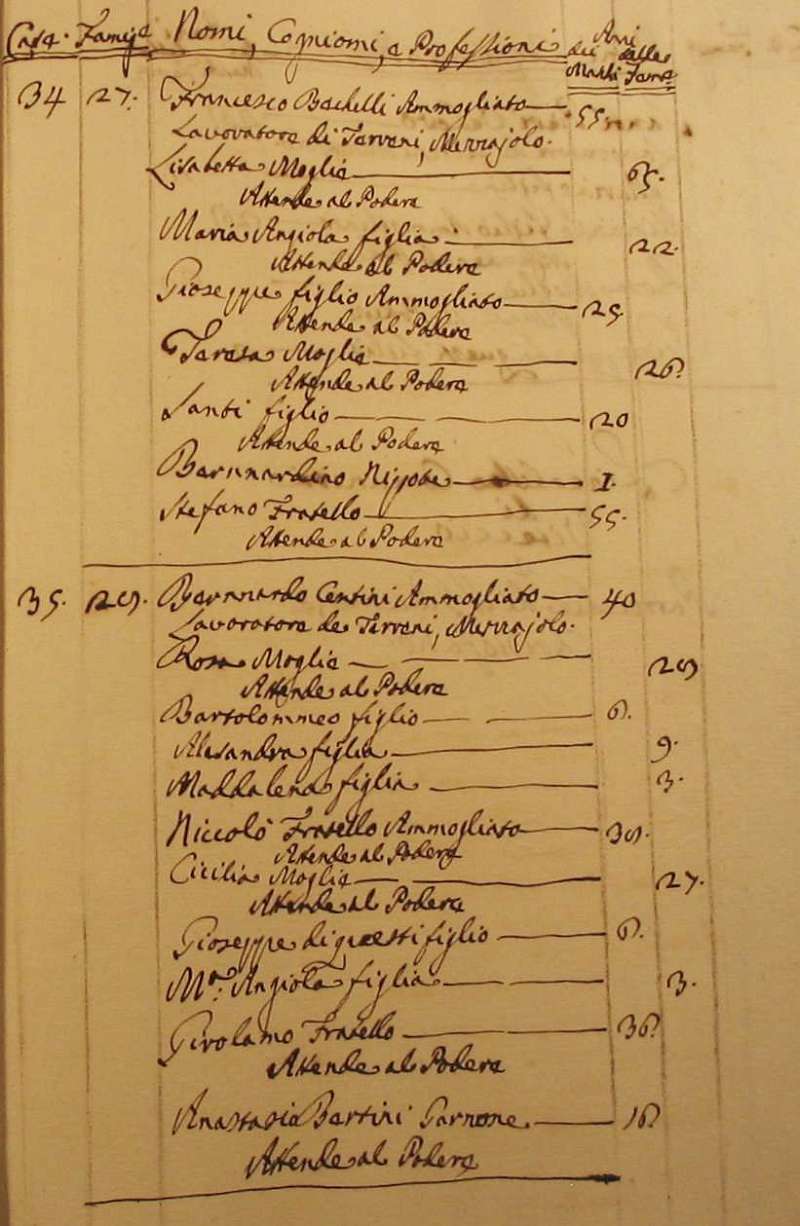 Casa. Famiga Nomi, Cognomi, e Professioni Anni
dei delle
Maschi Fame
34 27. Francesco Bachelli Ammogliato 55
Lavoratore di Terreni, Mezzajolo.
Lisabetta Moglie 65.
Attende al Podere
Maria Angiola figlia. 22.
Attende al Podere
Gioseppe figlio Ammogliato 25.
Attende al Podere
Teresa Moglie 26
Attende al Podere
Santi figlio 20
Attende al Podere
Bernnardino Nipote 1.
Stefano Fratello 55.
Attende al Podere
35. 28. Bernnardo Centini Ammogliato 40
Lavoratore de Terreni, Mezzajolo.
Rosa Moglie
Attende al Podere
Bartolommeo figlio 6.
Alesandra figlia 9.
Maddalena figlia 3.
Niccolò Fratello Ammogliato
Attende al Podere
Cicilia Moglie 27.
Attende al Podere
Gioseppe di questi figlio 6.
Mª. Angiola figlia 3.
Girolamo Fratello 36
Attende al Podere
Anastasio Bertini Garzone. 16
Attende al Podere